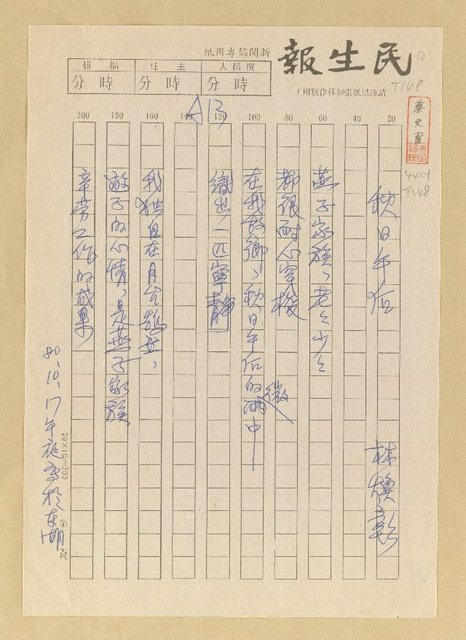 民生報
新聞稿專用紙
撰稿人
主任
編輯
時 分
時 分
時 分
A13
T148
T148
20
40
60
80
100
120
140
160
180
200
秋日午后
林煥彰
燕子家族,老老少少
都很耐心穿梭
在我故鄉,秋日午后的微雨中—
織出一匹寧靜
我獨自在月台
遊子的心情,是燕子家族
辛勞工作的成果
80.10.17午夜寫於東湖
20×10=200
第 頁